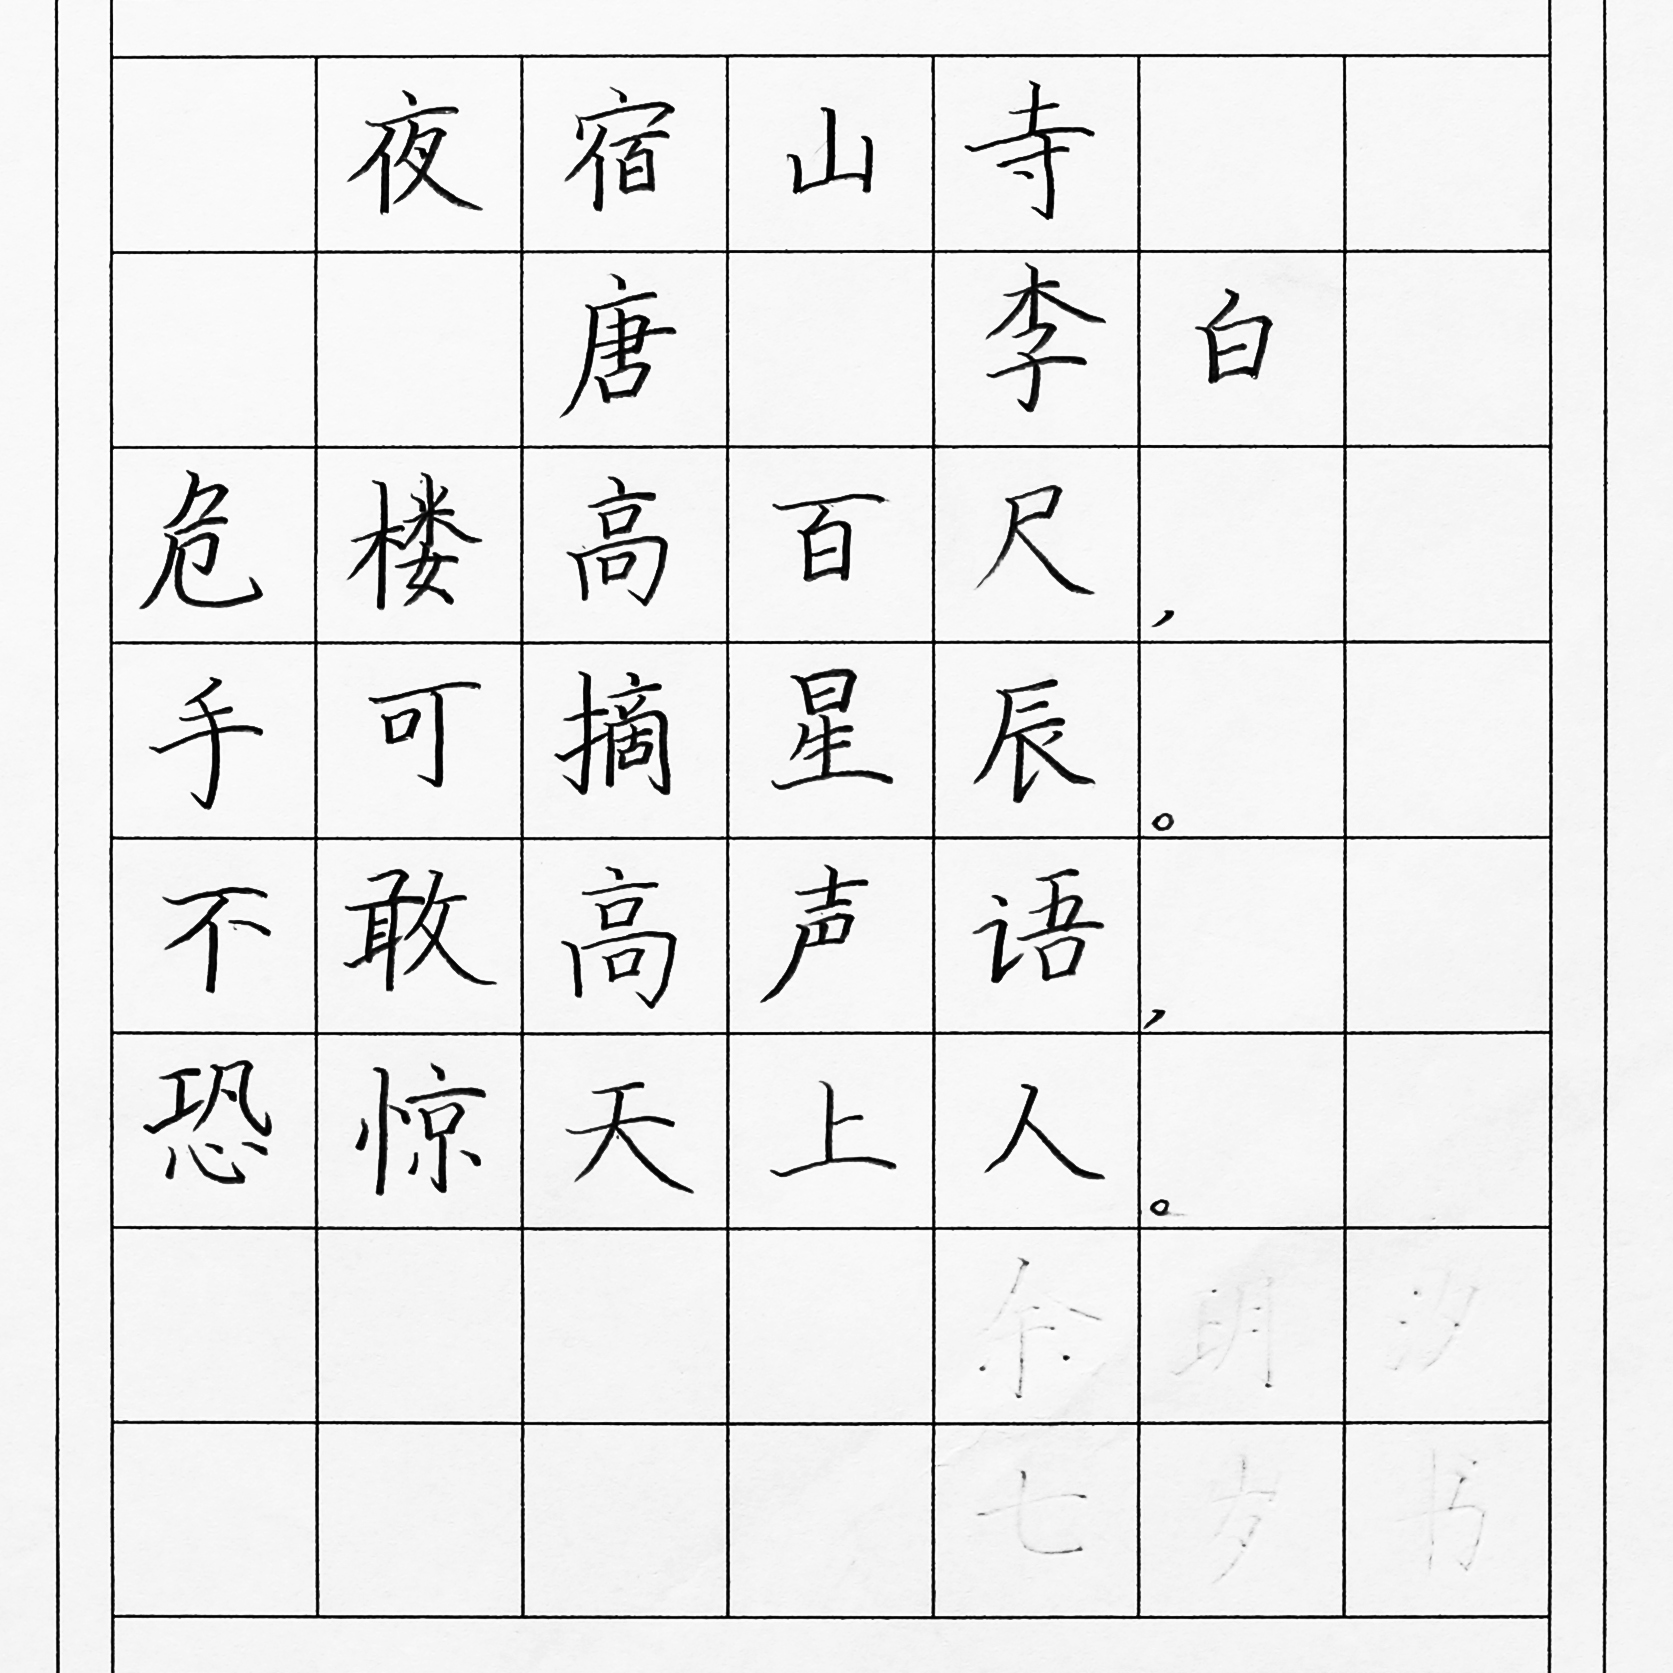 夜宿山寺
唐 李白
危楼高百尺，
手可摘星辰。
不敢高声语，
恐惊天上人。
余明汐
七岁书